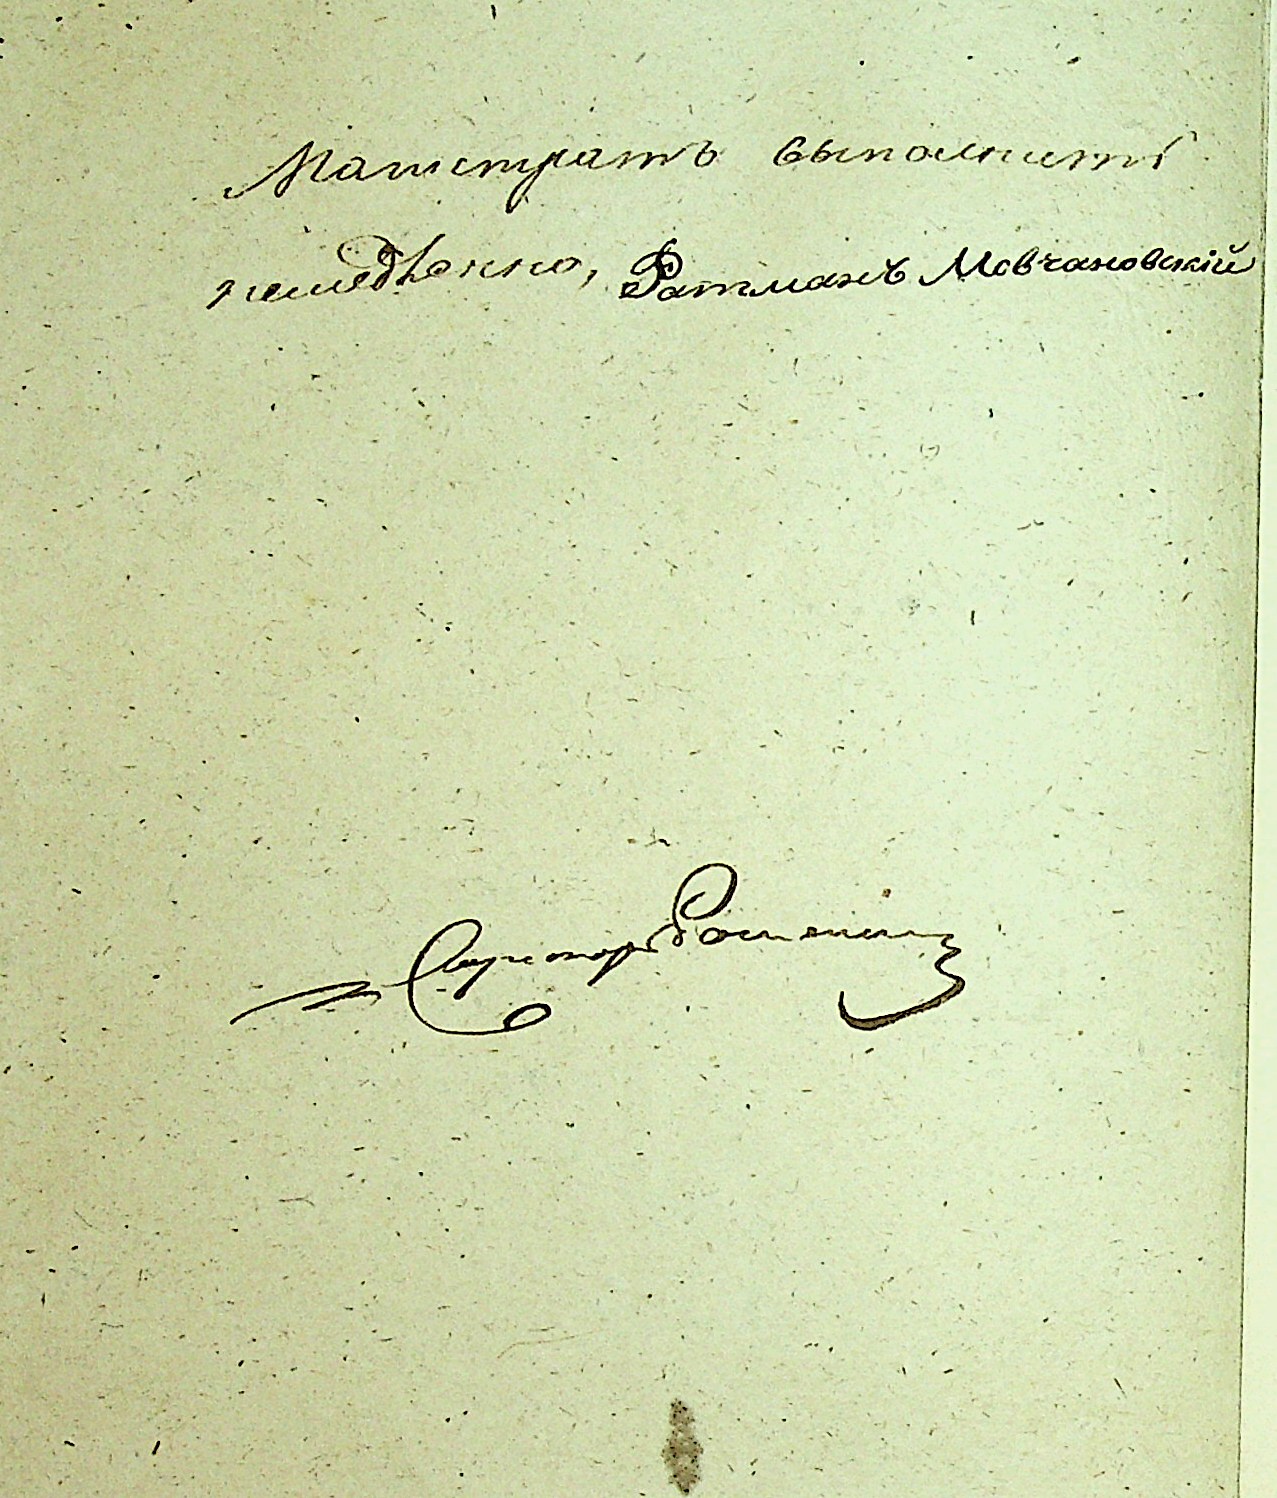 Магистратъ выполнить
немедленно, Ратманъ Мовчановскій